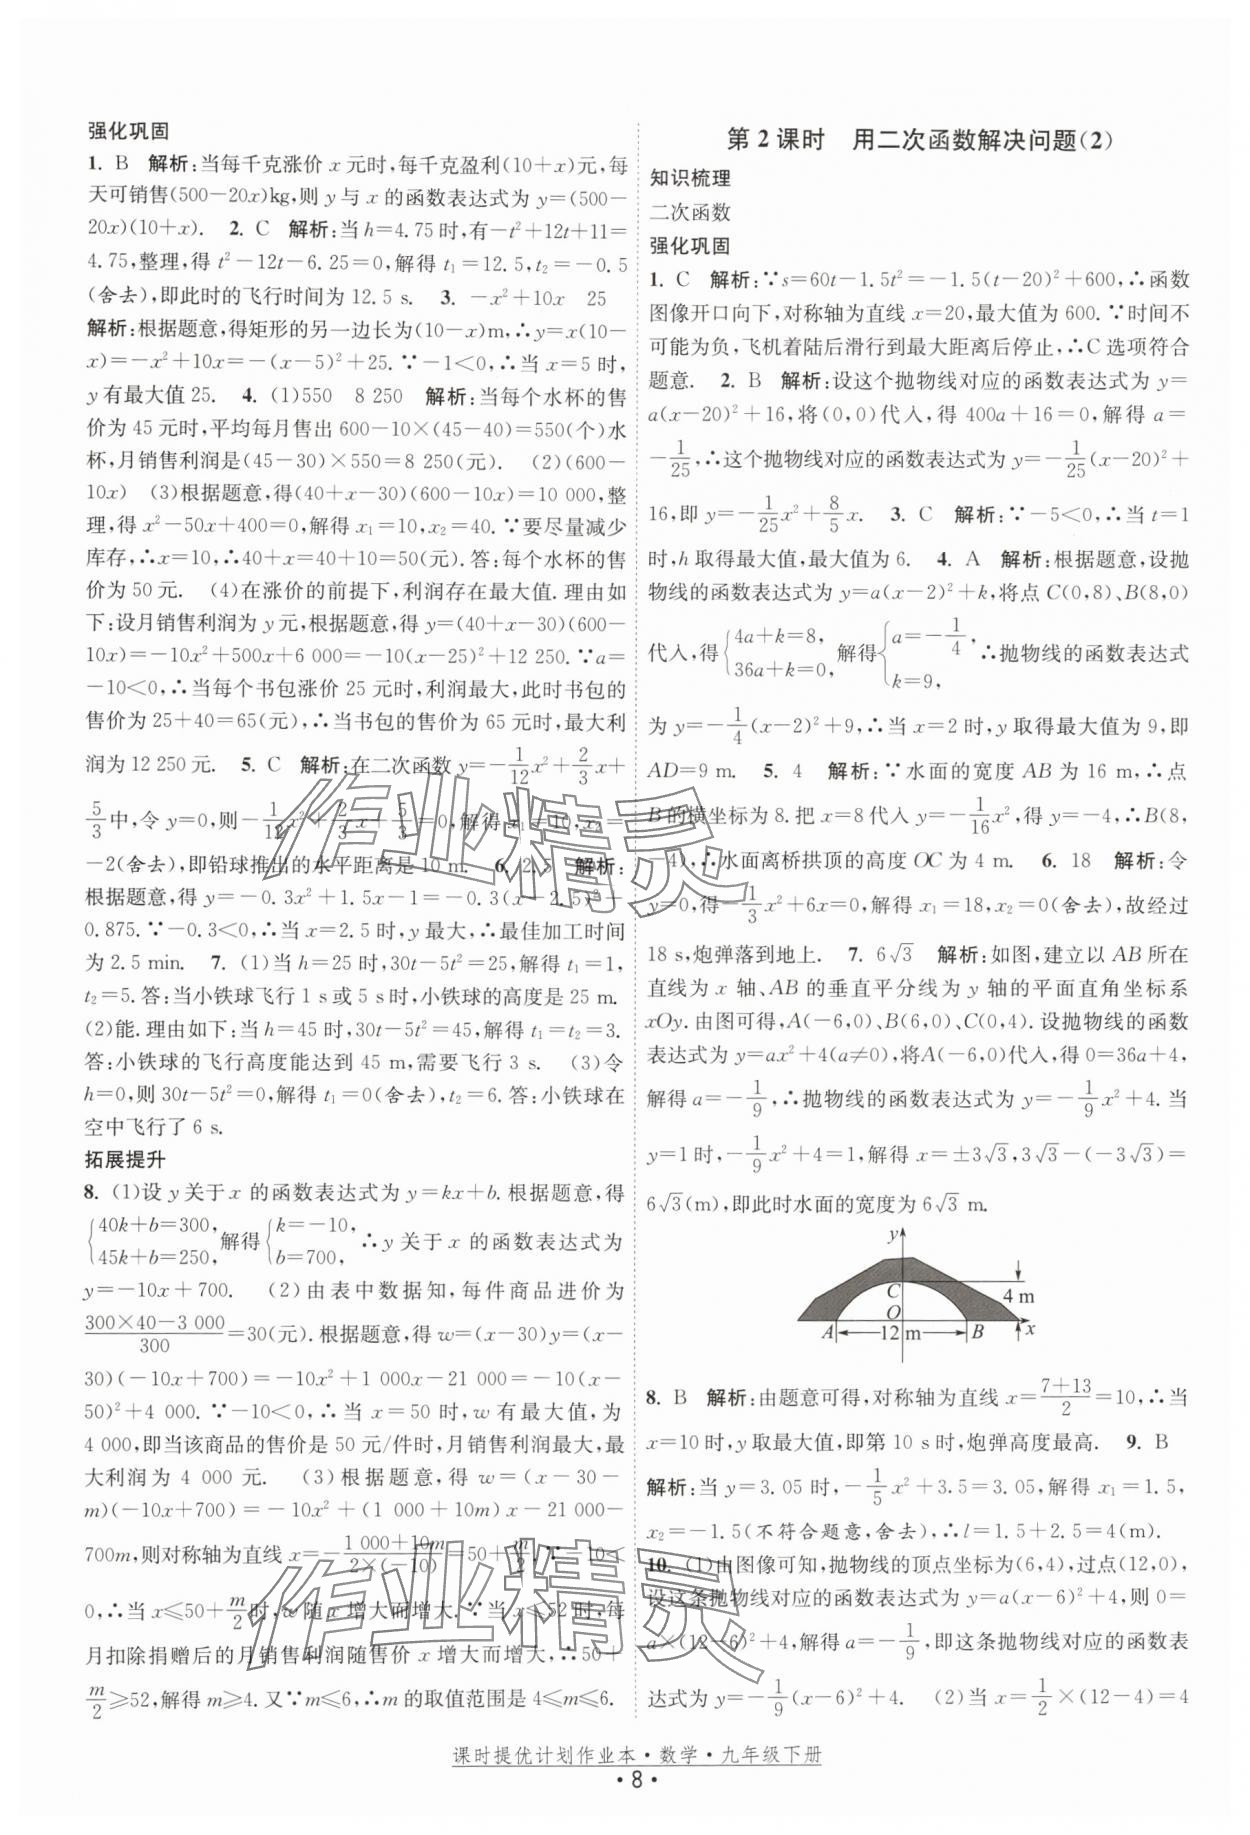 强化巩固
1. B　解析:当每千克涨价 x 元时,每千克盈利(10+x)元,每
天可销售(500-20x)kg,则 y 与 x 的函数表达式为 y=(500-
20x)(10+x).　2. C　解析:当 h=4.75 时,有-t²+12t+11=
4.75,整理,得 t²-12t-6.25=0,解得 t₁=12.5,t₂=-0.5
(舍去),即此时的飞行时间为 12.5 s.　3. -x²+10x　25
解析:根据题意,得矩形的另一边长为(10-x)m,∴y=x(10-
x)=-x²+10x=-(x-5)²+25.∵-1<0,∴当 x=5 时,
y 有最大值 25.　4. (1)550　8 250　解析:当每个水杯的售
价为 45 元时,平均每月售出 600-10×(45-40)=550(个)水
杯,月销售利润是(45-30)×550=8 250(元).　(2)(600-
10x)　(3)根据题意,得(40+x-30)(600-10x)=10 000,整
理,得 x²-50x+400=0,解得 x₁=10,x₂=40.∵要尽量减少
库存,∴x=10,∴40+x=40+10=50(元).答:每个水杯的售
价为 50 元.　(4)在涨价的前提下,利润存在最大值.理由如
下:设月销售利润为 y 元,根据题意,得 y=(40+x-30)(600-
10x)=-10x²+500x+6 000=-10(x-25)²+12 250.∵a=
-10<0,∴当每个书包涨价 25 元时,利润最大,此时书包的
售价为 25+40=65(元),∴当书包的售价为 65 元时,最大利
润为 12 250 元.　5. C　解析:在二次函数 y=-1/12x²+2/3x+
5/3中,令 y=0,则-1/12x²+2/3x+5/3=0,解得 x₁=10,x₂=
-2(舍去),即铅球推出的水平距离是 10 m.　6. 2.5　解析:
根据题意,得 y=-0.3x²+1.5x-1=-0.3(x-2.5)²+
0.875.∵-0.3<0,∴当 x=2.5 时,y 最大,∴最佳加工时间
为 2.5 min.　7. (1)当 h=25 时,30t-5t²=25,解得 t₁=1,
t₂=5.答:当小铁球飞行 1 s 或 5 s 时,小铁球的高度是 25 m.
(2)能.理由如下:当 h=45 时,30t-5t²=45,解得 t₁=t₂=3.
答:小铁球的飞行高度能达到 45 m,需要飞行 3 s.　(3)令
h=0,则 30t-5t²=0,解得 t₁=0(舍去),t₂=6.答:小铁球在
空中飞行了 6 s.
拓展提升
8. (1)设 y 关于 x 的函数表达式为 y=kx+b.根据题意,得
{40k+b=300, 45k+b=250,解得{k=-10, b=700,∴y 关于 x 的函数表达式为
y=-10x+700.　(2)由表中数据知,每件商品进价为
(300×40-3 000)/300=30(元).根据题意,得 w=(x-30)y=(x-
30)(-10x+700)=-10x²+1 000x-21 000=-10(x-
50)²+4 000.∵-10<0,∴当 x=50 时,w 有最大值,为
4 000,即当该商品的售价是 50 元/件时,月销售利润最大,最
大利润为 4 000 元.　(3)根据题意,得 w=(x-30-
m)(-10x+700)=-10x²+(1 000+10m)x-21 000-
700m,则对称轴为直线 x=-(1 000+10m)/(2×(-10))=50+m/2.∵-10<
0,∴当 x≤50+m/2时,w 随 x 增大而增大.∵当 x≤52 时,每
月扣除捐赠后的月销售利润随售价 x 增大而增大,∴50+
m/2≥52,解得 m≥4.又∵m≤6,∴m 的取值范围是 4≤m≤6.
第 2 课时　用二次函数解决问题(2)
知识梳理
二次函数
强化巩固
1. C　解析:∵s=60t-1.5t²=-1.5(t-20)²+600,∴函数
图像开口向下,对称轴为直线 x=20,最大值为 600.∵时间不
可能为负,飞机着陆后滑行到最大距离后停止,∴C 选项符合
题意.　2. B　解析:设这个抛物线对应的函数表达式为 y=
a(x-20)²+16,将(0,0)代入,得 400a+16=0,解得 a=
-1/25,∴这个抛物线对应的函数表达式为 y=-1/25(x-20)²+
16,即 y=-1/25x²+8/5x.　3. C　解析:∵-5<0,∴当 t=1
时,h 取得最大值,最大值为 6.　4. A　解析:根据题意,设抛
物线的函数表达式为 y=a(x-2)²+k,将点 C(0,8)、B(8,0)
代入,得{4a+k=8, 36a+k=0,解得{a=-1/4, k=9,∴抛物线的函数表达式
为 y=-1/4(x-2)²+9,∴当 x=2 时,y 取得最大值为 9,即
AD=9 m.　5. 4　解析:∵水面的宽度 AB 为 16 m,∴点
B 的横坐标为 8.把 x=8 代入 y=-1/16x²,得 y=-4,∴B(8,
-4),∴水面离桥拱顶的高度 OC 为 4 m.　6. 18　解析:令
y=0,得-1/3x²+6x=0,解得 x₁=18,x₂=0(舍去),故经过
18 s,炮弹落到地上.　7. 6√3　解析:如图,建立以 AB 所在
直线为 x 轴、AB 的垂直平分线为 y 轴的平面直角坐标系
xOy.由图可得,A(-6,0)、B(6,0)、C(0,4).设抛物线的函数
表达式为 y=ax²+4(a≠0),将A(-6,0)代入,得 0=36a+4,
解得 a=-1/9,∴抛物线的函数表达式为 y=-1/9x²+4.当
y=1 时,-1/9x²+4=1,解得 x=±3√3,3√3-(-3√3)=
6√3(m),即此时水面的宽度为 6√3 m.
y
C
4 m
O
A
12 m
B
x
8. B　解析:由题意可得,对称轴为直线 x=(7+13)/2=10,∴当
x=10 时,y 取最大值,即第 10 s 时,炮弹高度最高.　9. B
解析:当 y=3.05 时,-1/5x²+3.5=3.05,解得 x₁=1.5,
x₂=-1.5(不符合题意,舍去),∴l=1.5+2.5=4(m).
10. (1)由图像可知,抛物线的顶点坐标为(6,4),过点(12,0),
设这条抛物线对应的函数表达式为 y=a(x-6)²+4,则 0=
a×(12-6)²+4,解得 a=-1/9,即这条抛物线对应的函数表
达式为 y=-1/9(x-6)²+4.　(2)当 x=1/2×(12-4)=4
课时提优计划作业本·数学·九年级下册
·8·
作业精灵
作业精灵